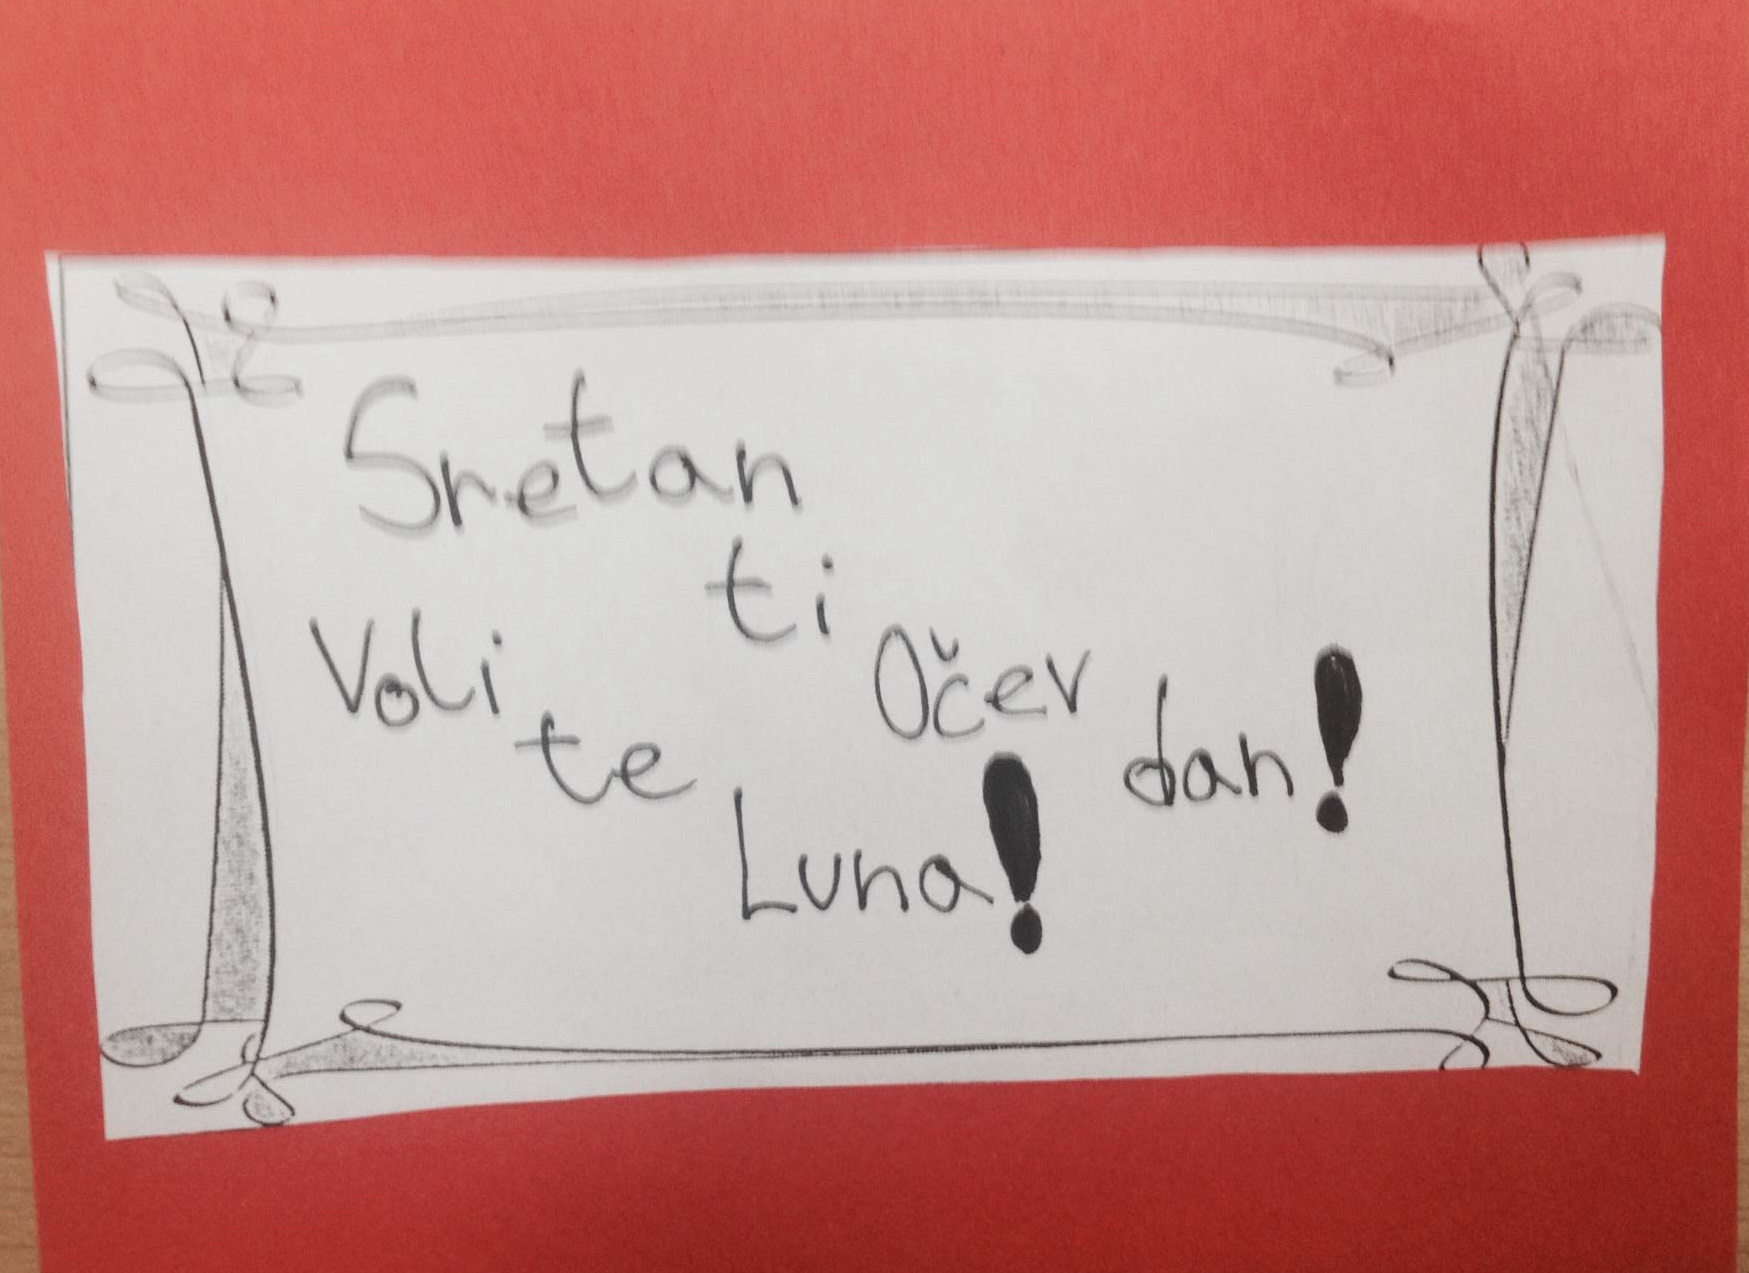 Sretan
ti
Očev
dan!
Voli
te
Luna!